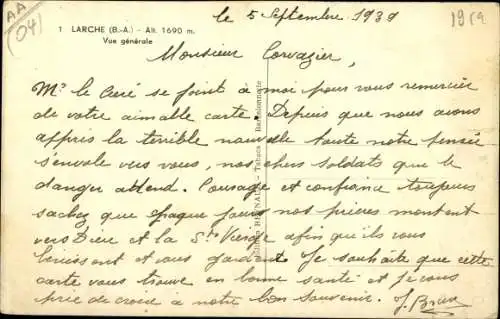 AA
04
1 LARCHE (B.-A.) - Alt. 1690 m.
Vue générale
le 5 Septembre 1939
Monsieur Corvazier,
Mr le Curé se joint à moi pour vous remercier
de votre aimable carte. Depuis que nous avons
appris la terrible nouvelle toute notre pensée
s'envole vers vous, nos chers soldats que le
danger attend. Courage et confiance toujours
sachez que chaque jours nos prières montent
vers Dieu et la Ste Vierge afin qu'ils vous
bénissent et vous gardent. Je souhaite que cette
carte vous trouve en bonne santé et je vous
prie de croire à notre bon souvenir.